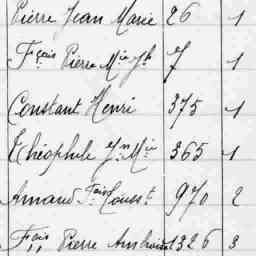 Pierre Jean Marie 26 1
Fçois Pierre Mie Jh 7 1
Constant Henri 375 1
Théophile Jn Mie 365 1
Armand Fçois Tousst 970 2
Fçois Pierre Ambroise 1326 3